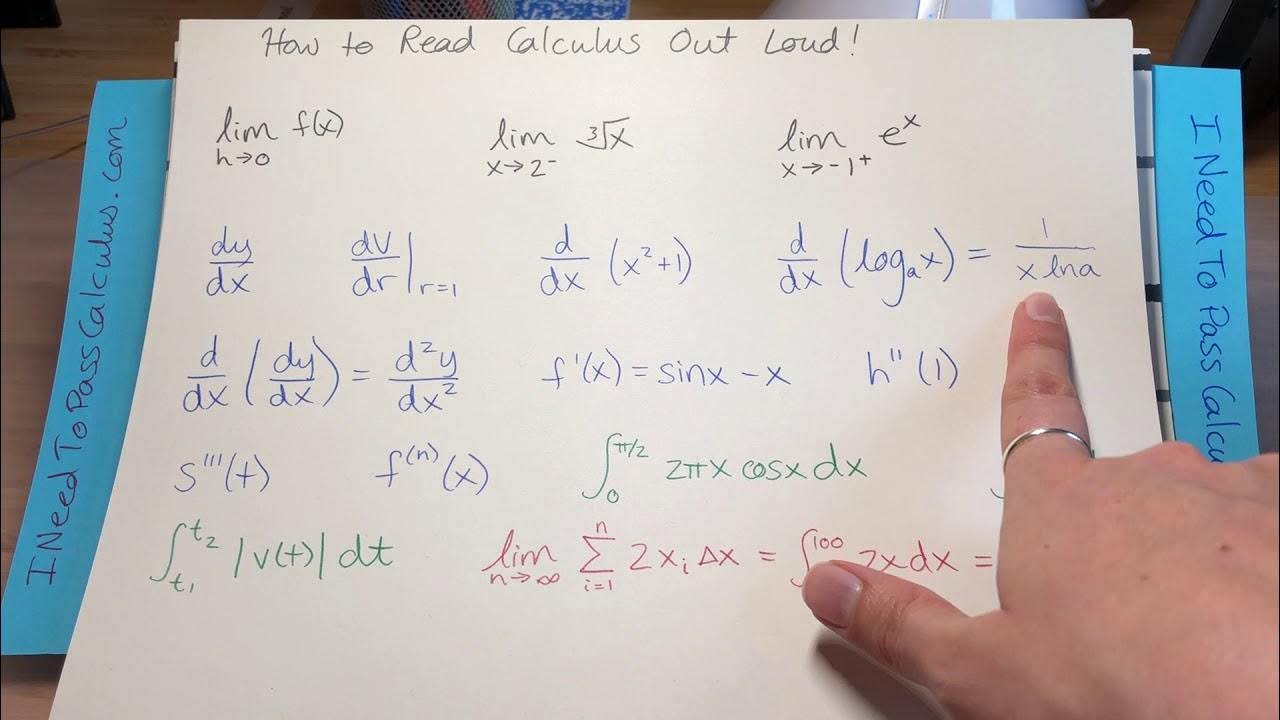 How to Read Calculus Out Loud!
lim h→0 f(x)   lim x→2⁻ ∛x   lim x→-1⁺ eˣ
dy/dx   dV/dr |r=1   d/dx (x²+1)   d/dx (logₐx) = 1/(x lna)
d/dx (dy/dx) = d²y/dx²   f'(x) = sinx - x   h''(1)
s'''(t)   f⁽ⁿ⁾(x)   ∫₀^π/2 2πx cosx dx
∫t₁^t₂ |v(t)| dt   lim n→∞ ∑ i=1 n 2xᵢ Δx = ∫ 100 2x dx =
I Need To Pass Calculus.com
I Need To Pass Calcu